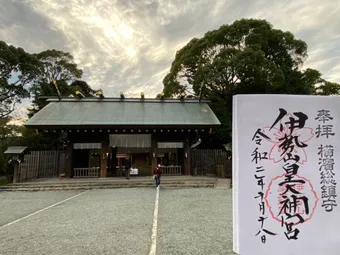 奉拝
横濱総鎮守
伊勢山皇大神宮
令和二年十月十八日